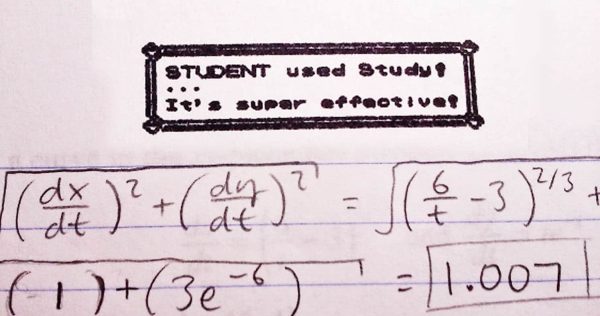 STUDENT used Study!
...
It's super effective!
√(dx/dt)² + (dy/dt)² = √(6/t - 3)^2/3 +
(-1) + (3e⁻⁶) = 1.007